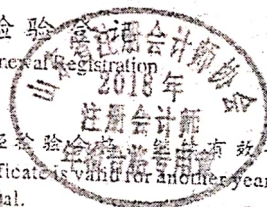 检验登
Renewal Registration
山东省注册会计师协会
2018年
注册会计师
年检合格专用章
检验合格 继续有效
ficate is valid for another year
al.